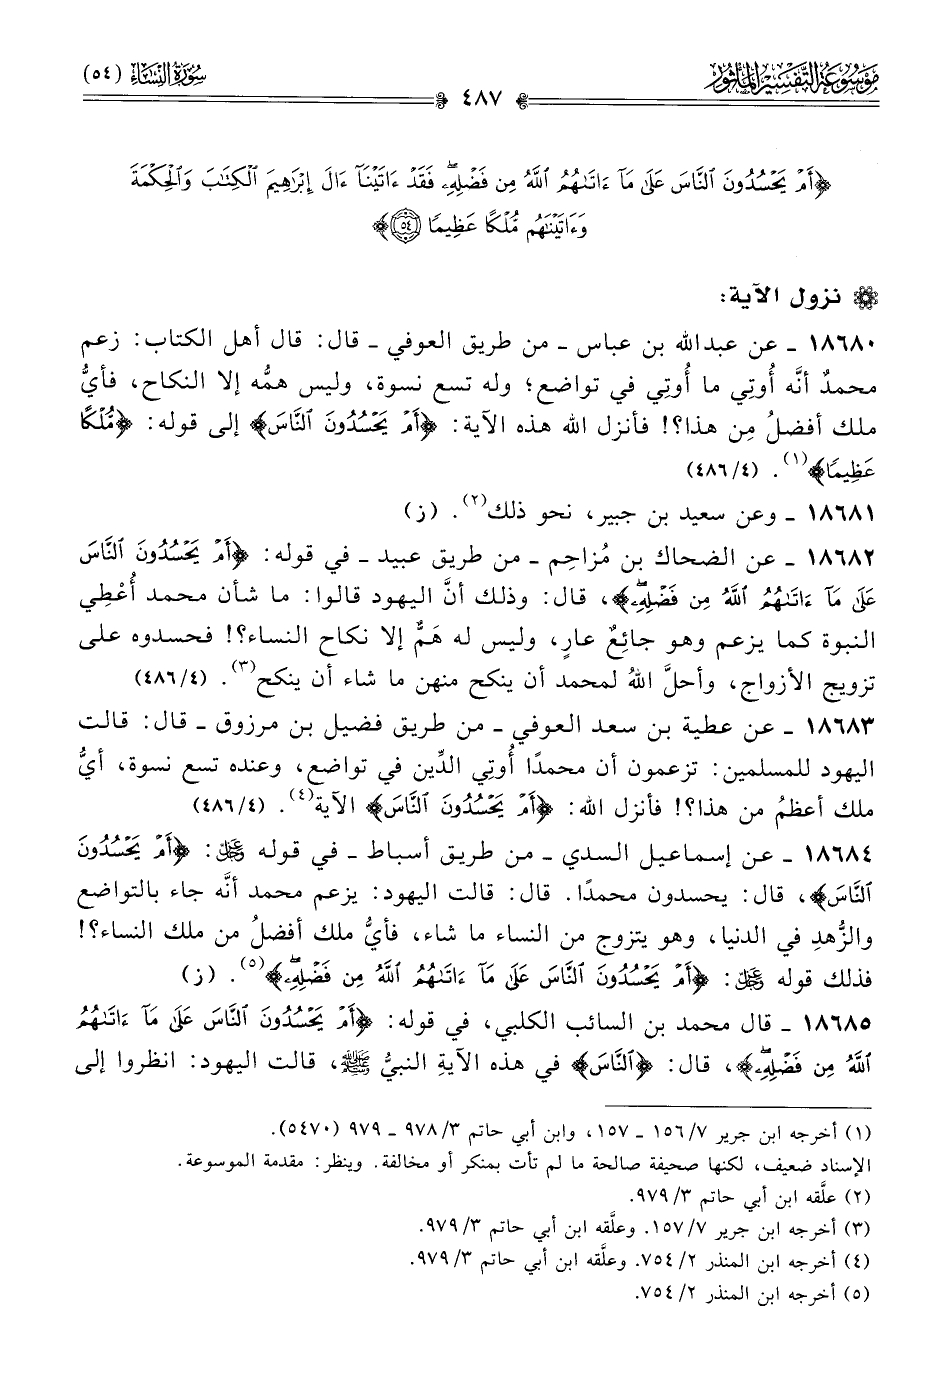 مَوْسُوعَةُ التَّفْسِيرِ المَأْثُورِ
سُورَةُ النِّسَاءِ (٥٤)
٤٨٧
﴿أَمْ يَحْسُدُونَ ٱلنَّاسَ عَلَىٰ مَآ ءَاتَىٰهُمُ ٱللَّهُ مِن فَضْلِهِۦۖ فَقَدْ ءَاتَيْنَآ ءَالَ إِبْرَٰهِيمَ ٱلْكِتَٰبَ وَٱلْحِكْمَةَ
وَءَاتَيْنَٰهُم مُّلْكًا عَظِيمًا ٥٤﴾
نزول الآية:
١٨٦٨٠ ـ عن عبدالله بن عباس ـ من طريق العوفي ـ قال: قال أهل الكتاب: زعم
محمدٌ أنَّه أُوتِي ما أُوتِي في تواضع؛ وله تسع نسوة، وليس همُّه إلا النكاح، فأيُّ
ملك أفضلُ مِن هذا؟! فأنزل الله هذه الآية: ﴿أَمْ يَحْسُدُونَ ٱلنَّاسَ﴾ إلى قوله: ﴿مُّلْكًا
عَظِيمًا﴾(١). (٤٨٦/٤)
١٨٦٨١ ـ وعن سعيد بن جبير، نحو ذلك(٢). (ز)
١٨٦٨٢ ـ عن الضحاك بن مُزاحِم ـ من طريق عبيد ـ في قوله: ﴿أَمْ يَحْسُدُونَ ٱلنَّاسَ
عَلَىٰ مَآ ءَاتَىٰهُمُ ٱللَّهُ مِن فَضْلِهِۦۖ﴾، قال: وذلك أنَّ اليهود قالوا: ما شأن محمد أُعْطِي
النبوة كما يزعم وهو جائِعٌ عارٍ، وليس له هَمٌّ إلا نكاح النساء؟! فحسدوه على
تزويج الأزواج، وأحلَّ اللهُ لمحمد أن ينكح منهن ما شاء أن ينكح(٣). (٤٨٦/٤)
١٨٦٨٣ ـ عن عطية بن سعد العوفي ـ من طريق فضيل بن مرزوق ـ قال: قالت
اليهود للمسلمين: تزعمون أن محمدًا أُوتِي الدِّين في تواضع، وعنده تسع نسوة، أيُّ
ملك أعظمُ من هذا؟! فأنزل الله: ﴿أَمْ يَحْسُدُونَ ٱلنَّاسَ﴾ الآية(٤). (٤٨٦/٤)
١٨٦٨٤ ـ عن إسماعيل السدي ـ من طريق أسباط ـ في قوله ﷻ: ﴿أَمْ يَحْسُدُونَ
ٱلنَّاسَ﴾، قال: يحسدون محمدًا. قال: قالت اليهود: يزعم محمد أنَّه جاء بالتواضع
والزُّهدِ في الدنيا، وهو يتزوج من النساء ما شاء، فأيُّ ملك أفضلُ من ملك النساء؟!
فذلك قوله ﷻ: ﴿أَمْ يَحْسُدُونَ ٱلنَّاسَ عَلَىٰ مَآ ءَاتَىٰهُمُ ٱللَّهُ مِن فَضْلِهِۦۖ﴾(٥). (ز)
١٨٦٨٥ ـ قال محمد بن السائب الكلبي، في قوله: ﴿أَمْ يَحْسُدُونَ ٱلنَّاسَ عَلَىٰ مَآ ءَاتَىٰهُمُ
ٱللَّهُ مِن فَضْلِهِۦۖ﴾، قال: ﴿ٱلنَّاسَ﴾ في هذه الآيةِ النبيُّ ﷺ، قالت اليهود: انظروا إلى
(١) أخرجه ابن جرير ٧/ ١٥٦ ـ ١٥٧، وابن أبي حاتم ٣/ ٩٧٨ ـ ٩٧٩ (٥٤٧٠).
الإسناد ضعيف، لكنها صحيفة صالحة ما لم تأت بمنكر أو مخالفة. وينظر: مقدمة الموسوعة.
(٢) علَّقه ابن أبي حاتم ٣/ ٩٧٩.
(٣) أخرجه ابن جرير ٧/ ١٥٧. وعلَّقه ابن أبي حاتم ٣/ ٩٧٩.
(٤) أخرجه ابن المنذر ٢/ ٧٥٤. وعلَّقه ابن أبي حاتم ٣/ ٩٧٩.
(٥) أخرجه ابن المنذر ٢/ ٧٥٤.